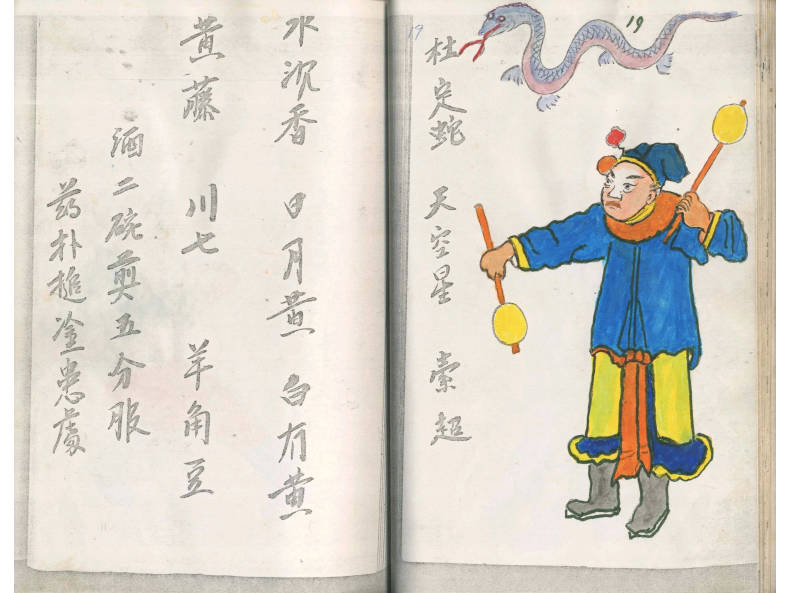 19
19
杜定蛇 天空星 索超
水沉香 日月黄 白冇黄
黄藤 川七 羊角豆
酒二碗煎五分服
药朴搥塗患處